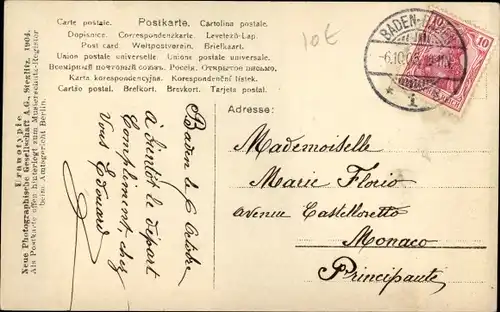 Carte postale. Postkarte. Cartolina postale.
Dopisnice. Correspondenzkarte. Levelező-Lap.
Post card. Weltpostverein. Briefkaart.
Union postale universelle. Unione postale universale.
Всемірный почтовый союзъ. Россія. Открытое письмо.
Karta korespondencyjna. Korespondenční lístek.
Cartão postal. Brefkort. Brevkort. Tarjeta postal.
10€
BADEN-BADEN
-6.10.05
* 1 *
10
Adresse:
Mademoiselle
Marie Florio
avenue Castelloretto
Monaco
Principauté
Baden le 6 Octobre
à bientôt le départ
Compliment, chez
vous Edouard
Francotypie.
Neue Photographische Gesellschaft A.G., Steglitz, 1904.
Als Postkarte offen hinterlegt zum Musterschutz-Register
beim Amtsgericht Berlin.